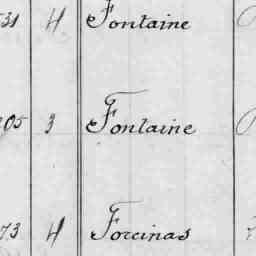 531 4 Fontaine
905 3 Fontaine
73 4 Forcinas